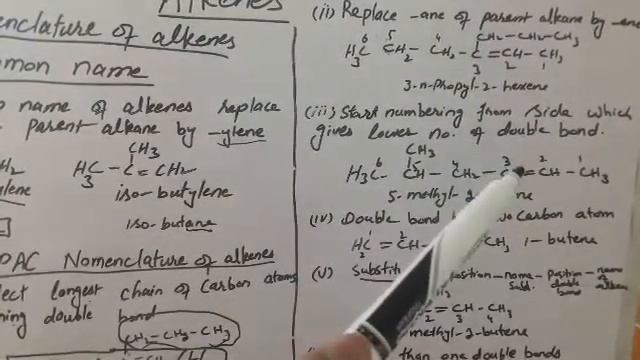 Alkenes
nclature of alkenes
mmon name
name of alkenes replace
parent alkane by -ylene
CH3
H3C - C = CH2
iso-butylene
iso-butane
PAC Nomenclature of alkenes
lect longest chain of carbon atoms
ning double bond
CH2-CH2-CH3
(ii) Replace -ane of parent alkane by -ene
CH2-CH2-CH3
H3C - CH2 - CH2 - C = CH - CH3
6 5 4 3 2 1
3-n-propyl-2-hexene
(iii) Start numbering from side which
gives lower no. of double bond.
CH3
H3C - CH - CH2 - C = CH - CH3
6 5 4 3 2 1
5-methyl-2
ne
(iv) Double bond
carbon atom
H2C = CH -
CH3 1-butene
(v) Substit
position-name-position-name
Subs. double bond alkene
= CH - CH3
2 3 4
methyl-2-butene
than one double bonds